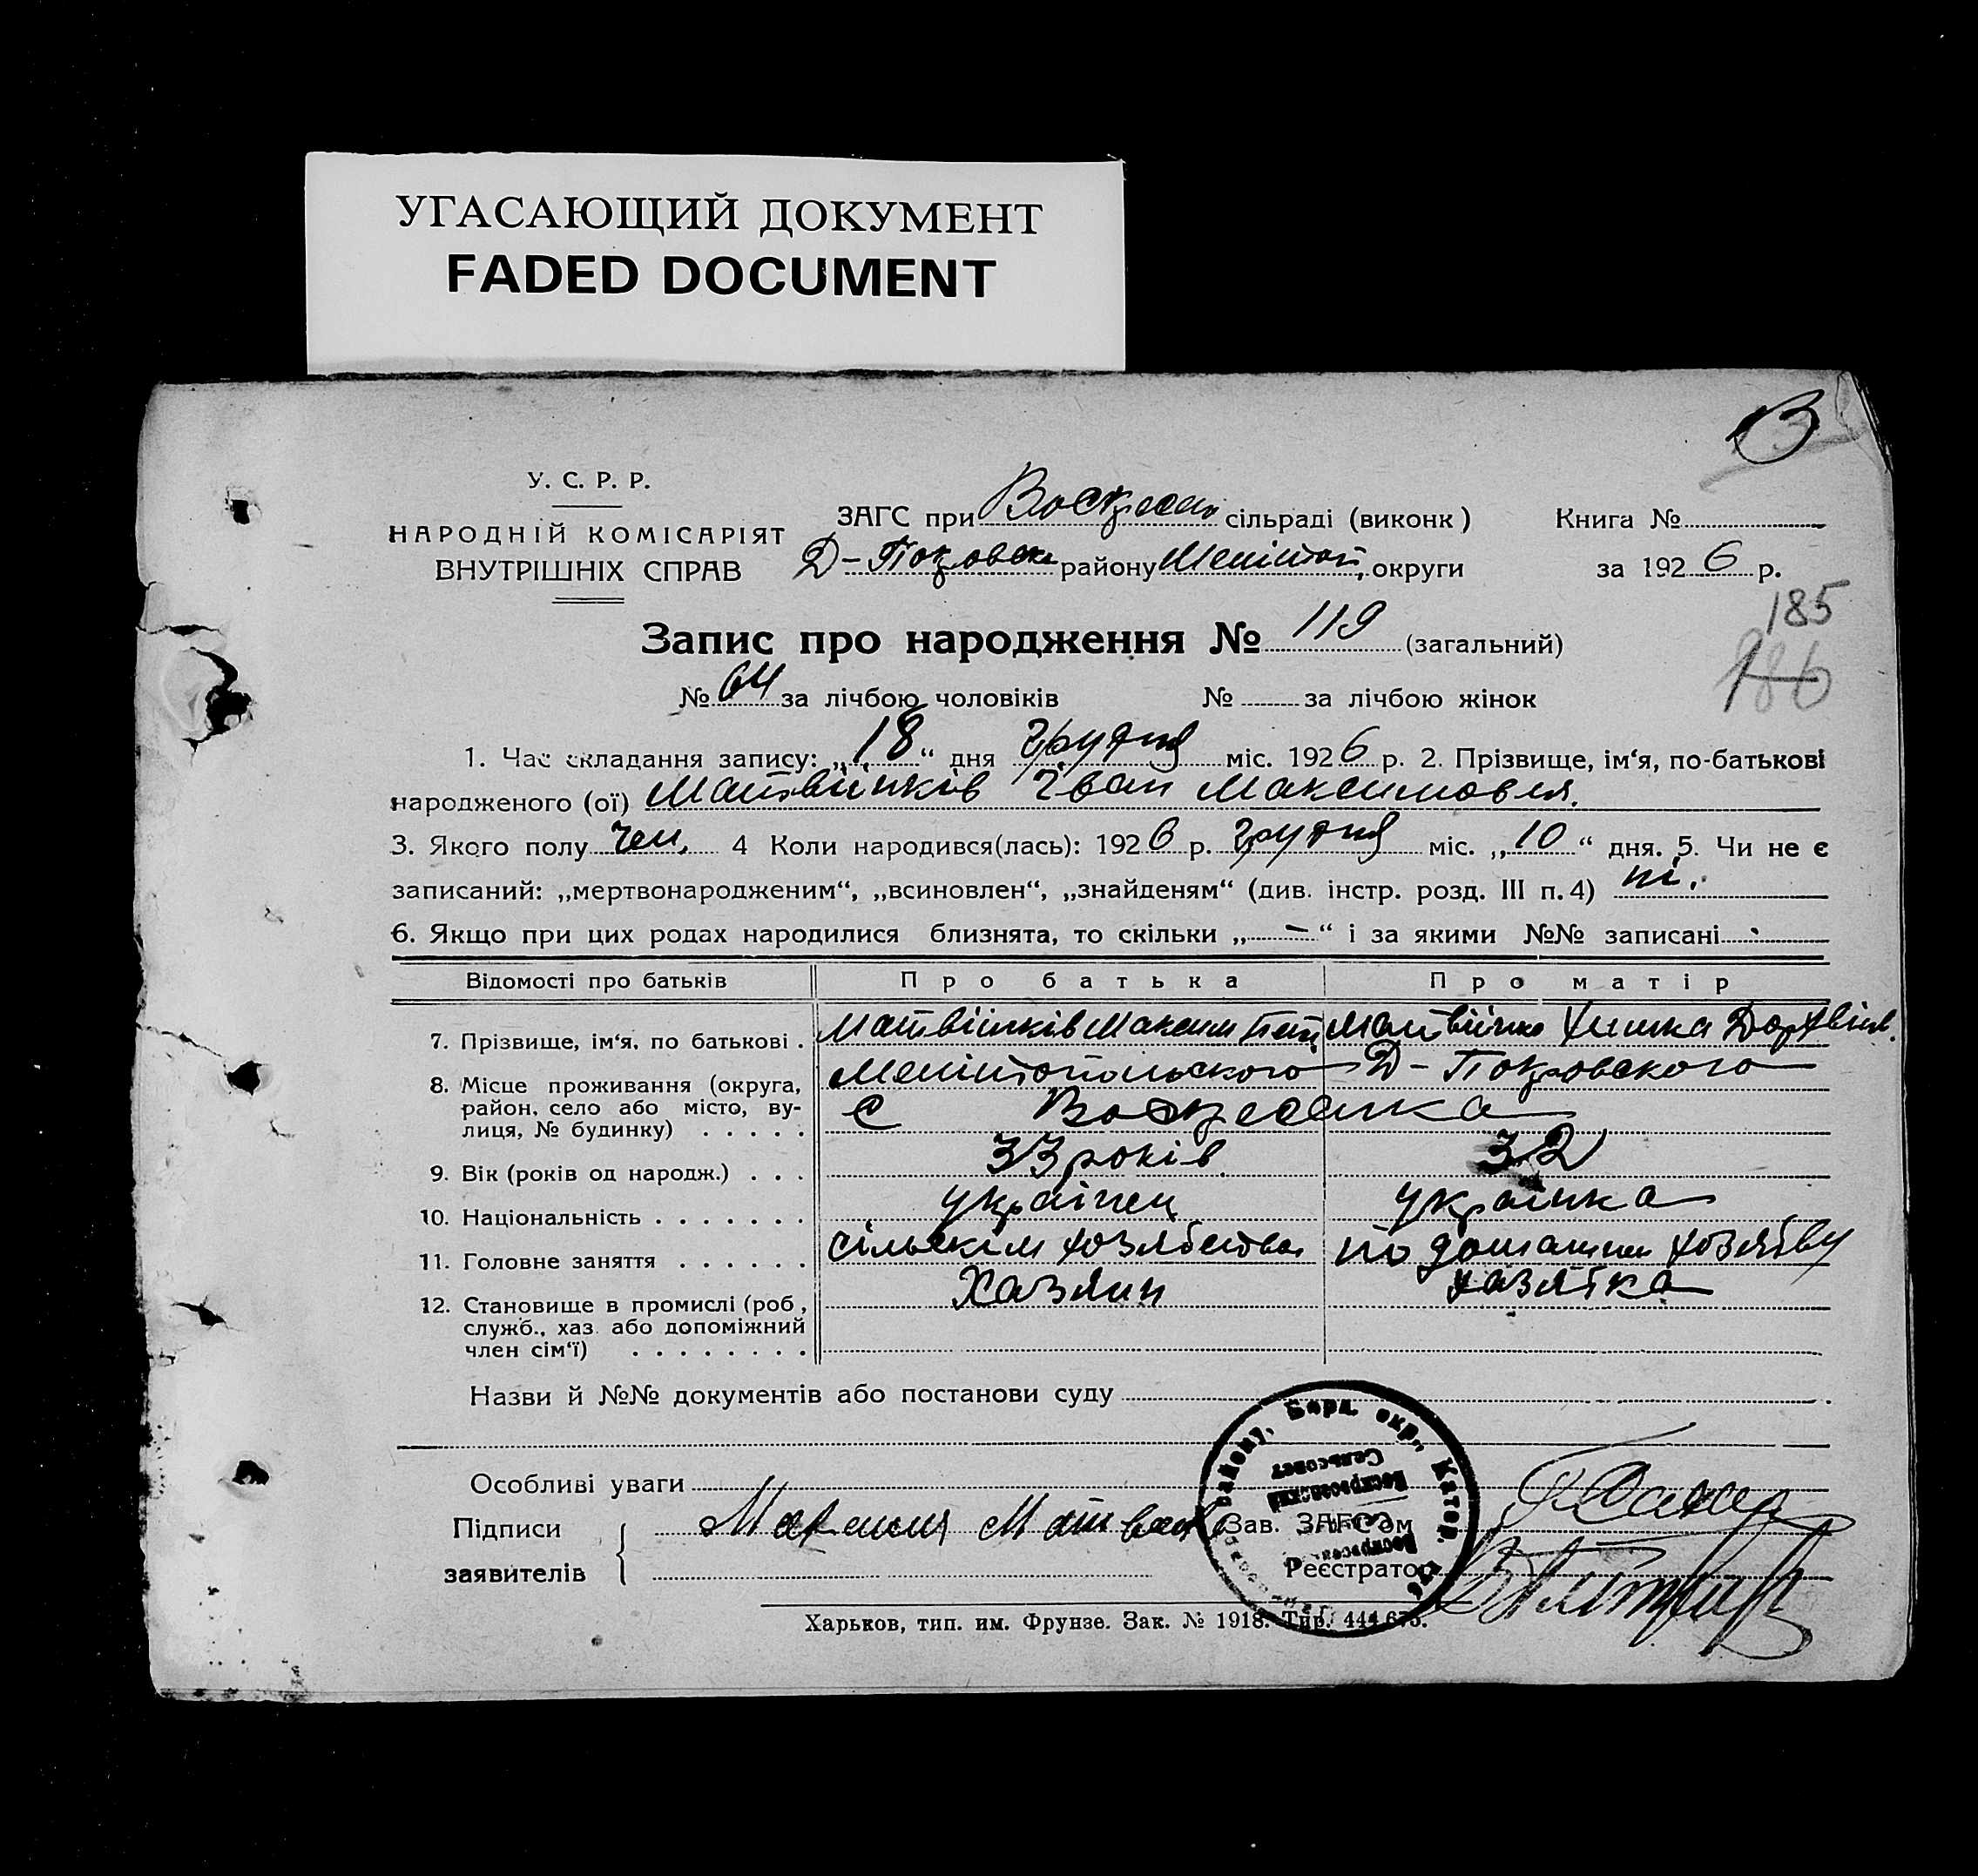 УГАСАЮЩИЙ ДОКУМЕНТ
FADED DOCUMENT
У. С. Р. Р.
НАРОДНІЙ КОМІСАРІЯТ
ВНУТРІШНІХ СПРАВ
ЗАГС при Воскресен сільраді (виконк)
Д-Покровск району Меліт̄оп. округи
Книга №
за 1926 р.
185
186
Запис про народження № 119 (загальний)
№ 64 за лічбою чоловіків № за лічбою жінок
1. Час складання запису: „18“ дня Грудня міс. 1926 р. 2. Прізвище, ім‘я, по-батькові
народженого (ої) Матвійків Іван Максимовия.
3. Якого полу чол. 4 Коли народився(лась): 1926 р. Грудня міс. „10“ дня. 5. Чи не є
записаний: „мертвонародженим“, „всиновлен“, „знайденям“ (див. інстр. розд. III п. 4) ні.
6. Якщо при цих родах народилися близнята, то скільки „–“ і за якими №№ записані
Відомості про батьків Про батька Про матір
7. Прізвище, ім‘я, по батькові . Матвійків Максим Матвійчко
8. Місце проживання (округа, Мелітопольского Д-Покровского
район, село або місто, ву- с Воскресенка
лиця, № будинку) . . . . .
9. Вік (років од народж.) . . . 33 років 32
10. Національність . . . . . . . українец українка
11. Головне заняття . . . . . . сільским хозябства по домашни хозяйву
12. Становище в промислі (роб, Хазяин хазяйка
служб., хаз. або допоміжний
член сім‘ї) . . . . . . . .
Назви й №№ документів або постанови суду
Особливі уваги
Підписи
заявителів
Максим
Зав. ЗАГС'ом
Реєстратор
району, Берд. окр., Катер.
Воскресенский
Сельсовет
Харьков, тип. им. Фрунзе. Зак. № 1918. Тир. 444.675.